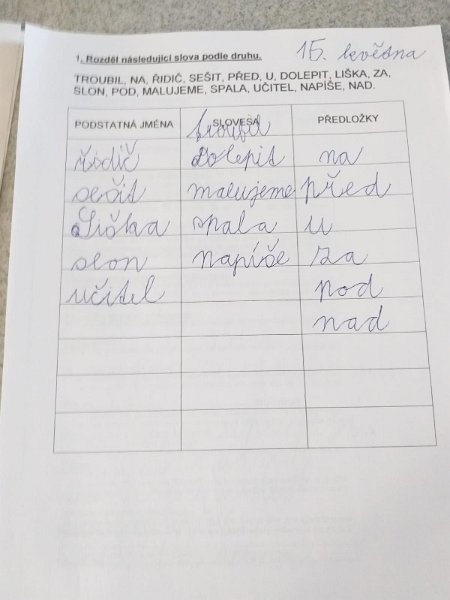 15. května
1. Rozděl následující slova podle druhu.
TROUBIL, NA, ŘIDIČ, SEŠIT, PŘED, U, DOLEPIT, LIŠKA, ZA,
SLON, POD, MALUJEME, SPALA, UČITEL, NAPÍŠE, NAD.
PODSTATNÁ JMÉNA SLOVESA PŘEDLOŽKY
troubil
řidič dolepit na
sešit malujeme před
Liška spala u
slon napíše za
učitel pod
nad